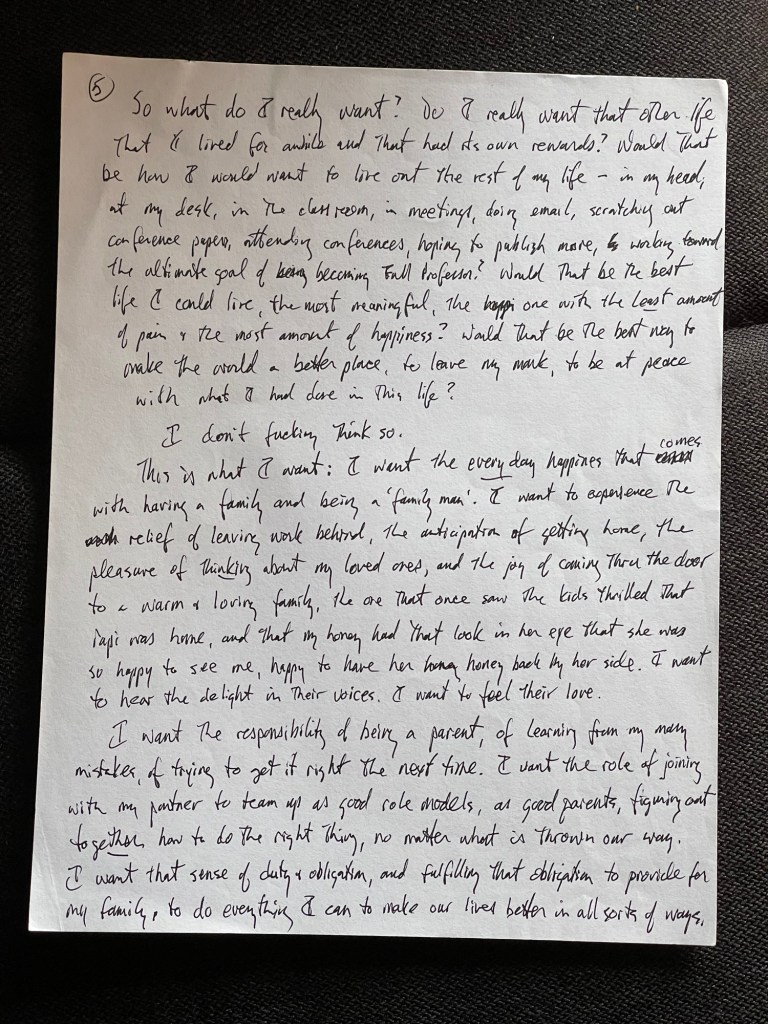 5
So what do I really want? Do I really want that other life
that I lived for awhile and that had its own rewards? Would that
be how I would want to live out the rest of my life – in my head,
at my desk, in the classroom, in meetings, doing email, scratching out
conference papers, attending conferences, hoping to publish more, working toward
the ultimate goal of being becoming Full Professor? Would that be the best
life I could live, the most meaningful, the happi one with the least amount
of pain & the most amount of happiness? Would that be the best way to
make the world a better place, to leave my mark, to be at peace
with what I had done in this life?
I don't fucking think so.
This is what I want: I want the everyday happiness that comes
with having a family and being a 'family man'. I want to experience the
relief of leaving work behind, the anticipation of getting home, the
pleasure of thinking about my loved ones, and the joy of coming thru the door
to a warm & loving family, the one that once saw the kids thrilled that
Papi was home, and that my honey had that look in her eye that she was
so happy to see me, happy to have her honey back by her side. I want
to hear the delight in their voices. I want to feel their love.
I want the responsibility of being a parent, of learning from my many
mistakes, of trying to get it right the next time. I want the role of joining
with my partner to team up as good role models, as good parents, figuring out
together how to do the right thing, no matter what is thrown our way.
I want that sense of duty & obligation, and fulfilling that obligation to provide for
my family, to do everything I can to make our lives better in all sorts of ways,